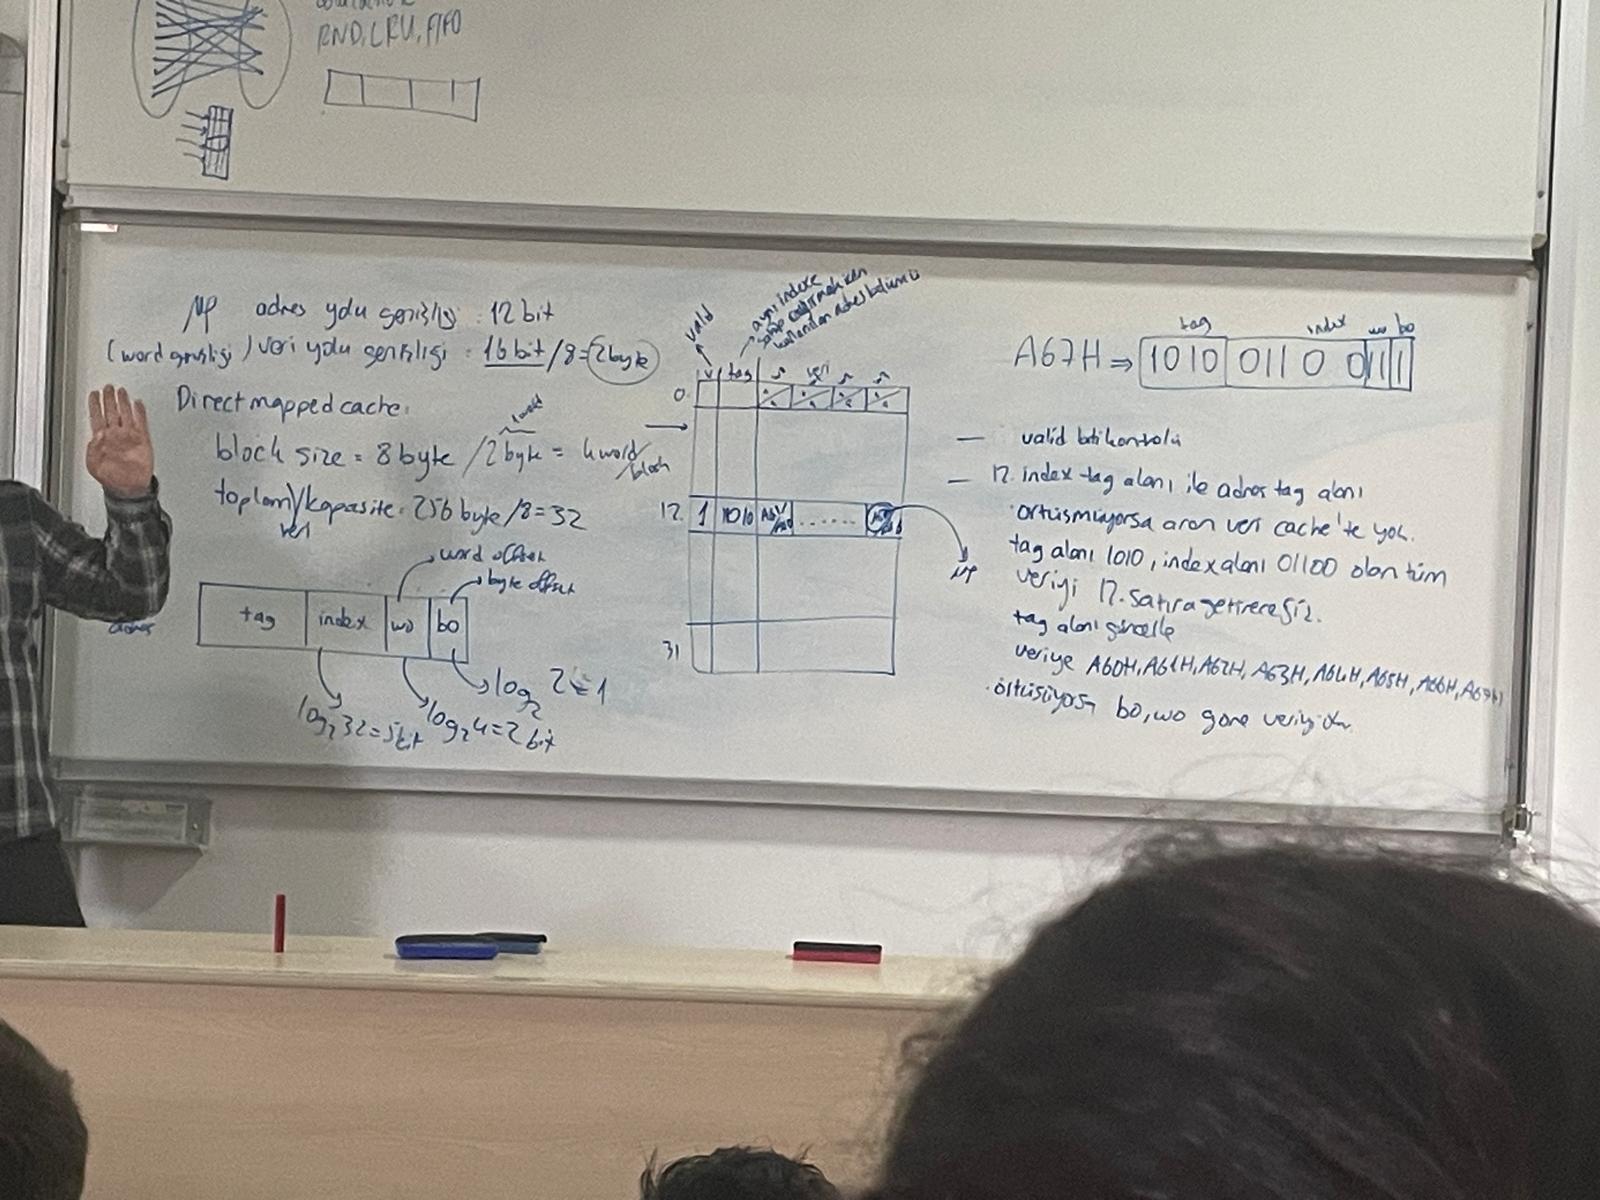 RND, LRU, FIFO
μP adres yolu genişliği : 12 bit
(word genişliği) veri yolu genişliği : 16 bit /8 = 2 byte
Direct mapped cache:
1 word
block size = 8 byte / 2 byte = 4 word/block
toplam/kapasite : 256 byte /8 = 32
veri
word offset
byte offset
tag index wo bo
adres
log₂ 32 = 5 bit
log₂ 4 = 2 bit
log₂ 2 = 1
valid
aynı indexe
kullanılan adres bölümü
v tag veri
0
12 1 1010 ......
μP
31
tag index wo bo
A67H ⇒ 1010 011 0 0 11 1
— valid biti kontrolü
— 12. index tag alanı ile adres tag alanı
örtüşmüyorsa aranan veri cache'te yok.
tag alanı 1010, index alanı 01100 olan tüm
veriyi 12. satıra getireceğiz.
tag alanı güncelle
veriye A60H, A61H, A62H, A63H, A64H, A65H, A66H, A67H
örtüşüyorsa bo, wo göre veriyi al.